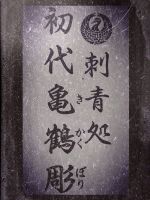 刺青処
初代亀鶴彫
きかくぼり